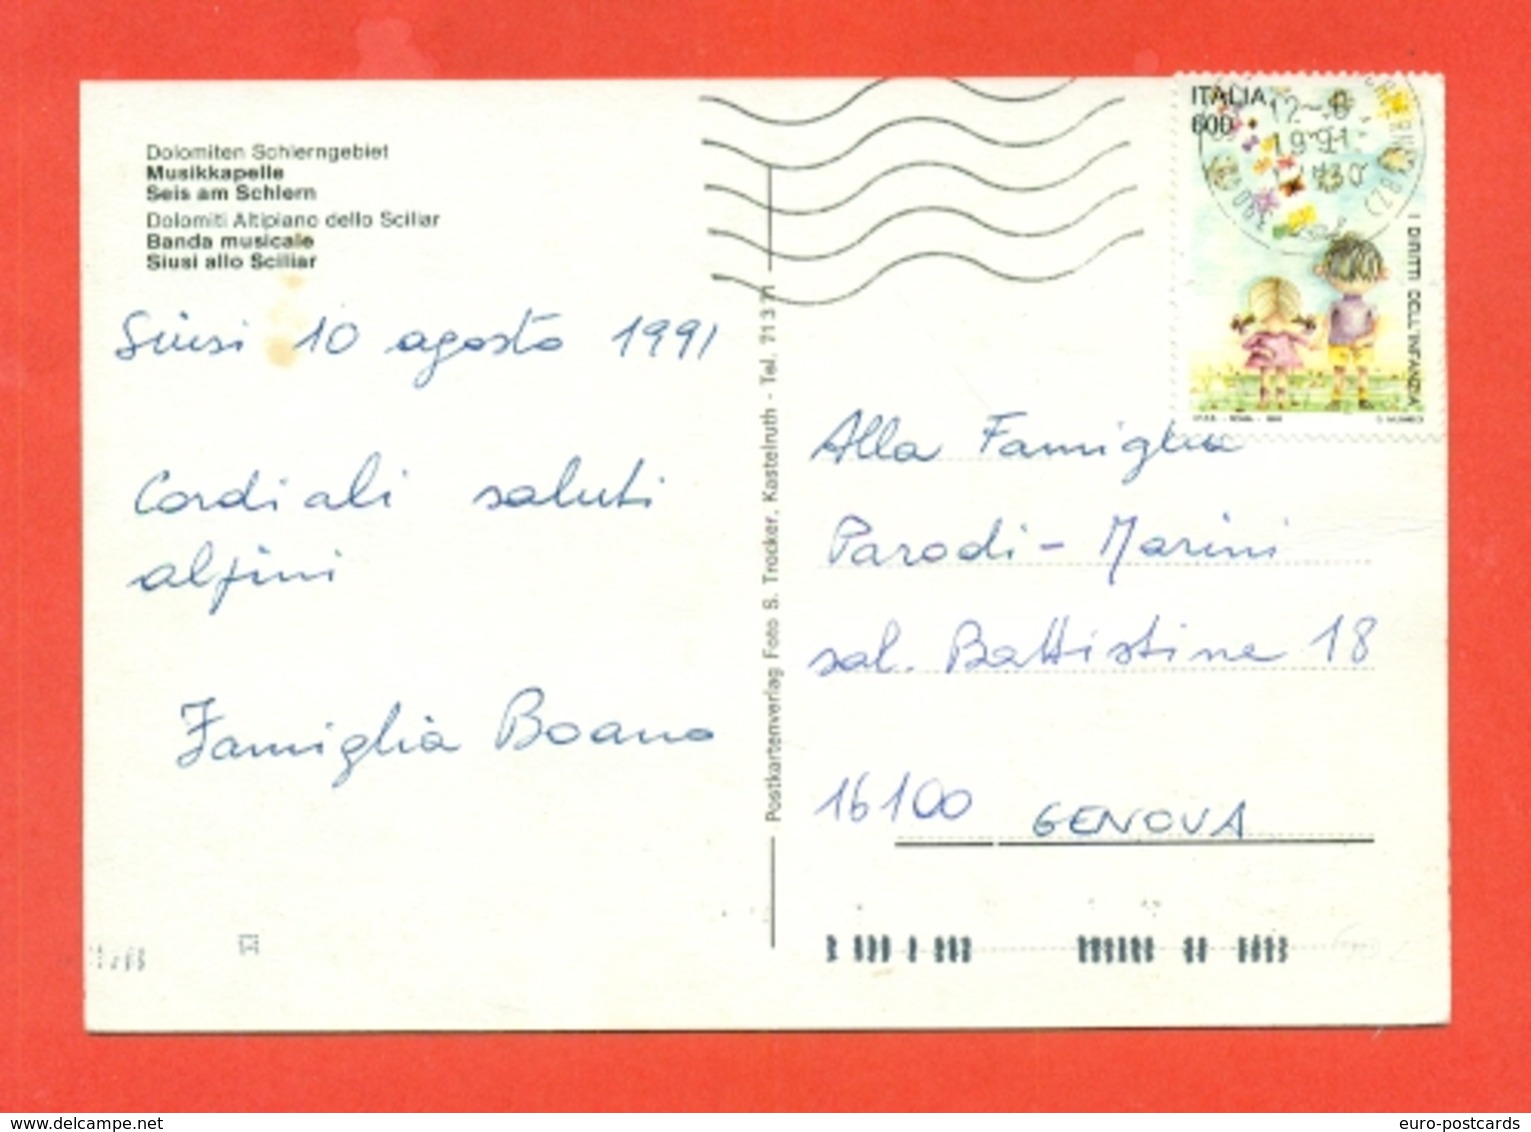 Dolomiten Schlerngebiet
Musikkapelle
Seis am Schlern
Dolomiti Altipiano dello Sciliar
Banda musicale
Siusi allo Sciliar
Siusi 10 agosto 1991
Cordiali saluti
alpini
Famiglia Boano
Postkartenverlag Foto S. Trocker, Kastelruth - Tel. 71371
ITALIA
600
I DIRITTI DELL'INFANZIA
12-8
1991
Alla Famiglia
Parodi - Marini
sal. Battistine 18
16100 GENOVA
euro-postcards